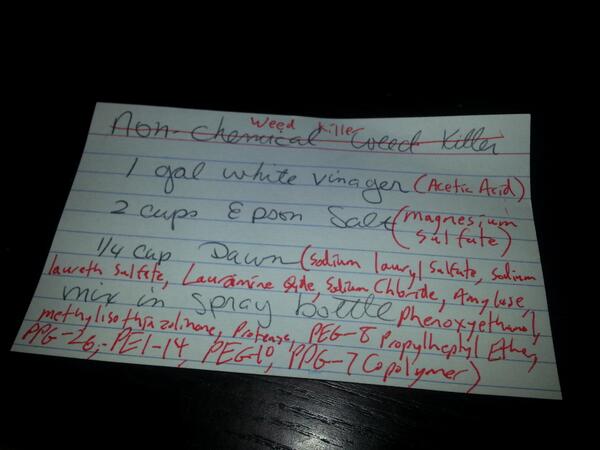 Weed Killer
Non-Chemical Weed Killer
1 gal white vinager (Acetic Acid)
2 cups Epson Salt (magnesium sulfate)
1/4 cup Dawn (sodium lauryl sulfate, sodium
laureth sulfate, Lauramine Oxide, Sodium Chloride, Amylase,
mix in spray bottle phenoxyethanol,
methylisothiazolinone, Protease, PEG-8 Propylheptyl Ether,
PPG-26, -PEI-14, PEG-10, PPG-7 Copolymer)